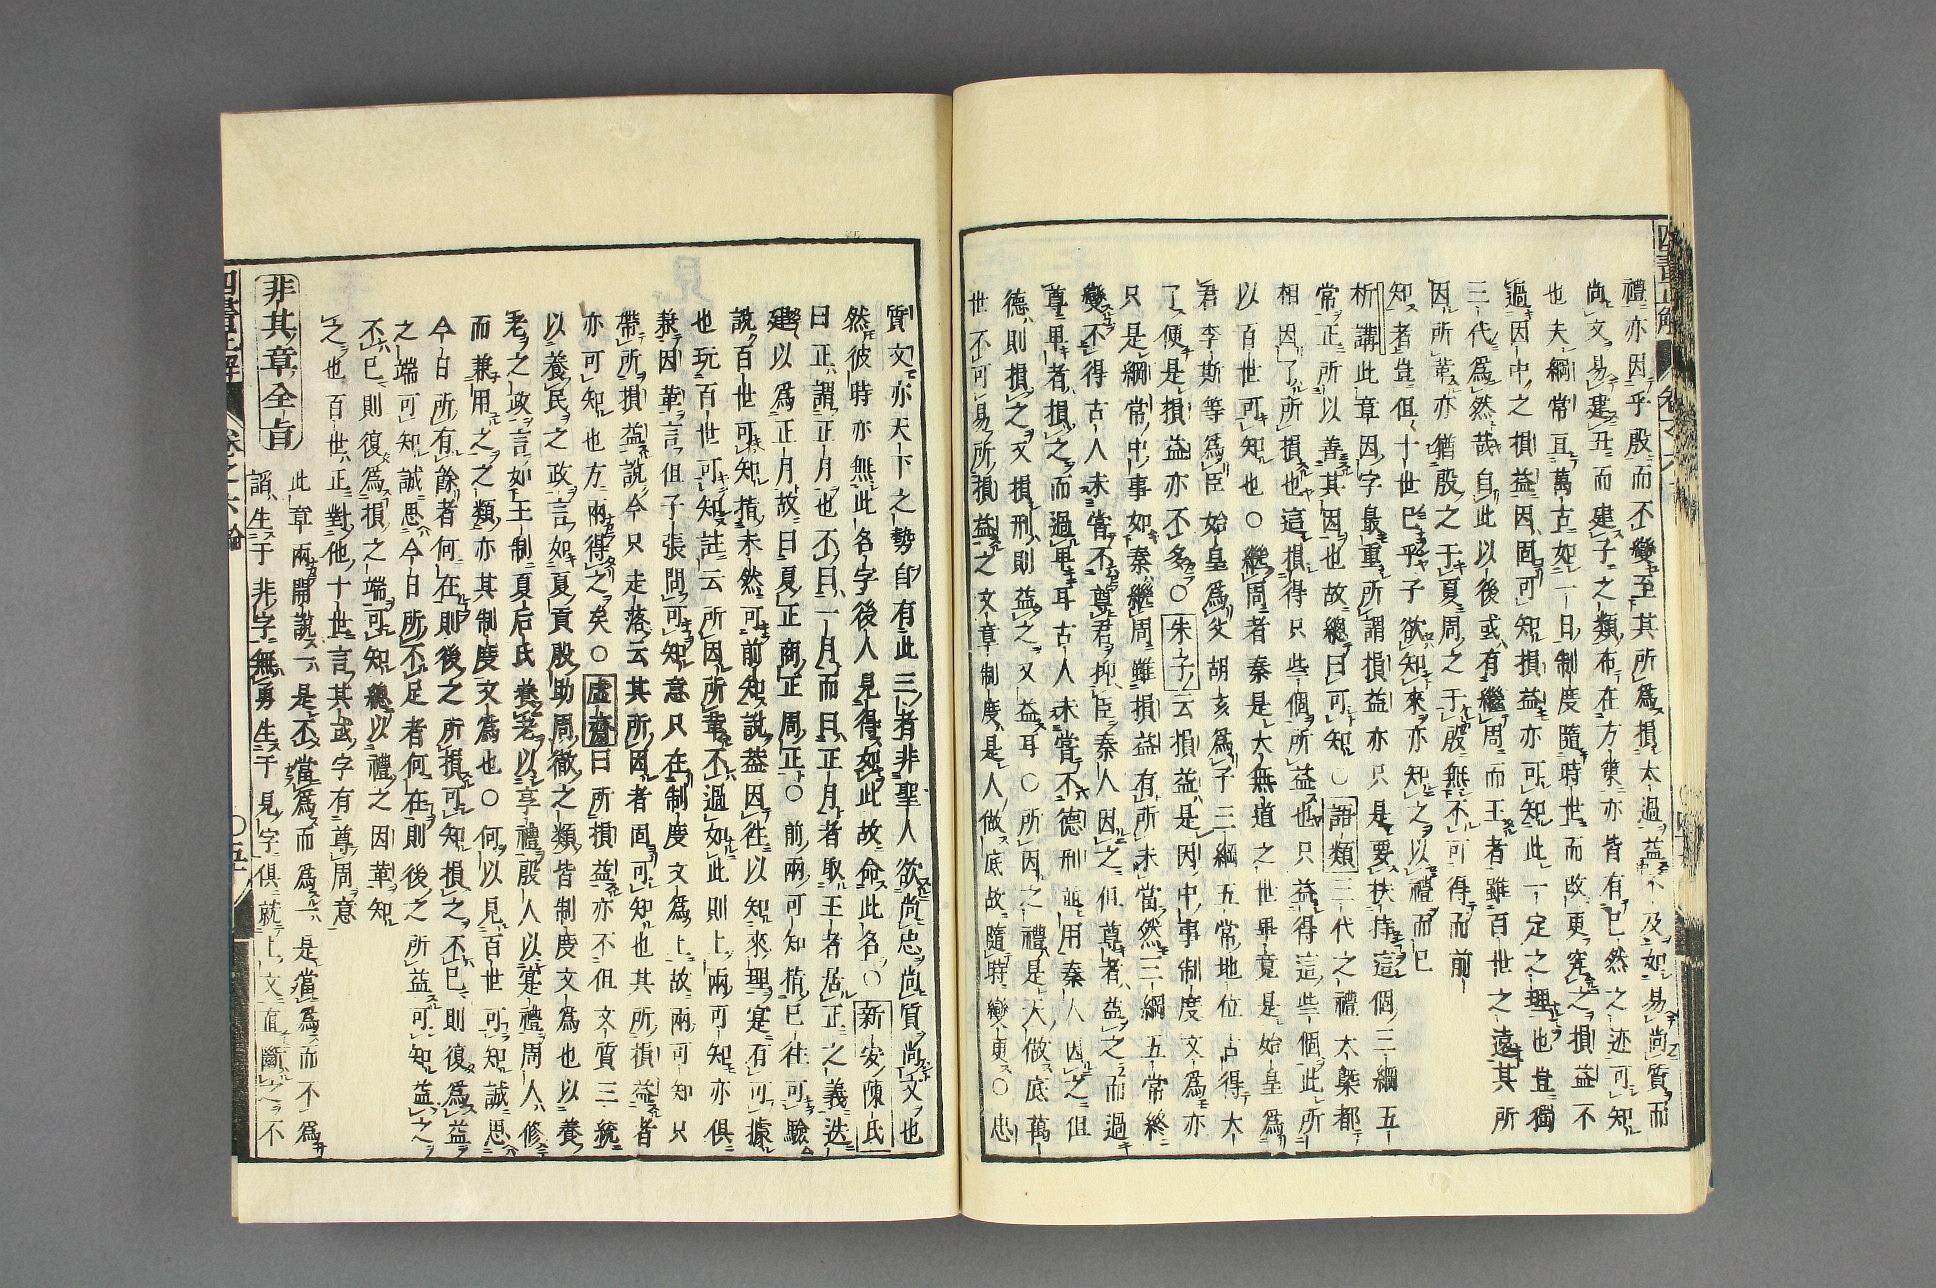 禮亦因乎殷而不變至其所爲損太過益不及如易尚質而
尚文易建丑而建子之類布在方策亦皆有已然之迹可知
也夫綱常亘萬古如一日制度隨時世而改更究之損益不
過因中之損益因固可知損益亦可知此一定之理也豈獨
三代爲然哉自此以後或有繼周而王者雖百世之遠其所
因所革亦猶殷之于夏周之于殷無不可得而前
知者豈但十世已乎子欲知來亦知之以禮而已
析講此章因字最重所謂損益亦只是要扶持這個三綱五
常正所以善其因也故總曰可知〇語類三代之禮大槩都
相因了所損也這損得只些個所益也只益得這些個此所
以百世可知也〇繼周者秦是大無道之世畢竟是始皇爲
君李斯等爲臣始皇爲父胡亥爲子三綱五常地位占得大
了便是損益亦不多〇朱子云損益是因中事制度文爲亦
只是綱常中事如秦繼周雖損益有所未當然三綱五常終
變不得古人未嘗不尊君抑臣秦人因之但尊者益之而過
尊卑者損之而過卑耳古人未嘗不德刑並用秦人因之但
德則損之又損刑則益之又益耳〇所因之禮是大做底萬
世不可易所損益之文章制度是人做底故隨時變更〇忠
質文亦天下之勢自有此三者非聖人欲尚忠尚質尚文也
然彼時亦無此名字後人見得如此故命此名〇新安陳氏
曰正謂正月也不曰一月而曰正月者取王者居正之義迭
建以爲正月故曰夏正商正周正〇前兩可知指已往可驗
說百世可知指未然可前知說葢因往以知來理寔有可據
也玩百世可知註云所因所革不過如此則上兩可知亦俱
兼因革言但子張問可知意只在制度文爲上故兩可知只
帶所損益說今只走落云其所因者固可知也其所損益者
亦可知也方兩得之矣〇虛齋曰所損益亦不但文質三統
以養民之政言如夏貢殷助周徹之類皆制度文爲也以養
老之政言如王制夏后氏養老以享禮殷人以寔禮周人修
而兼用之之類亦其制度文爲也〇何以見百世可知誠思
今日所有餘者何在則後之所損可知損之不已則復爲益
之端可知誠思今日所不足者何在則後之所益可知益之
不已則復爲損之端可知總以禮之因革知
之也百世正對他十世言其或字有尊周意
非其章全旨
此章兩開說一是不當爲而爲一是當爲而不爲
謟生于非字無勇生于見字俱就上文直斷之不
四書正解
卷之六論